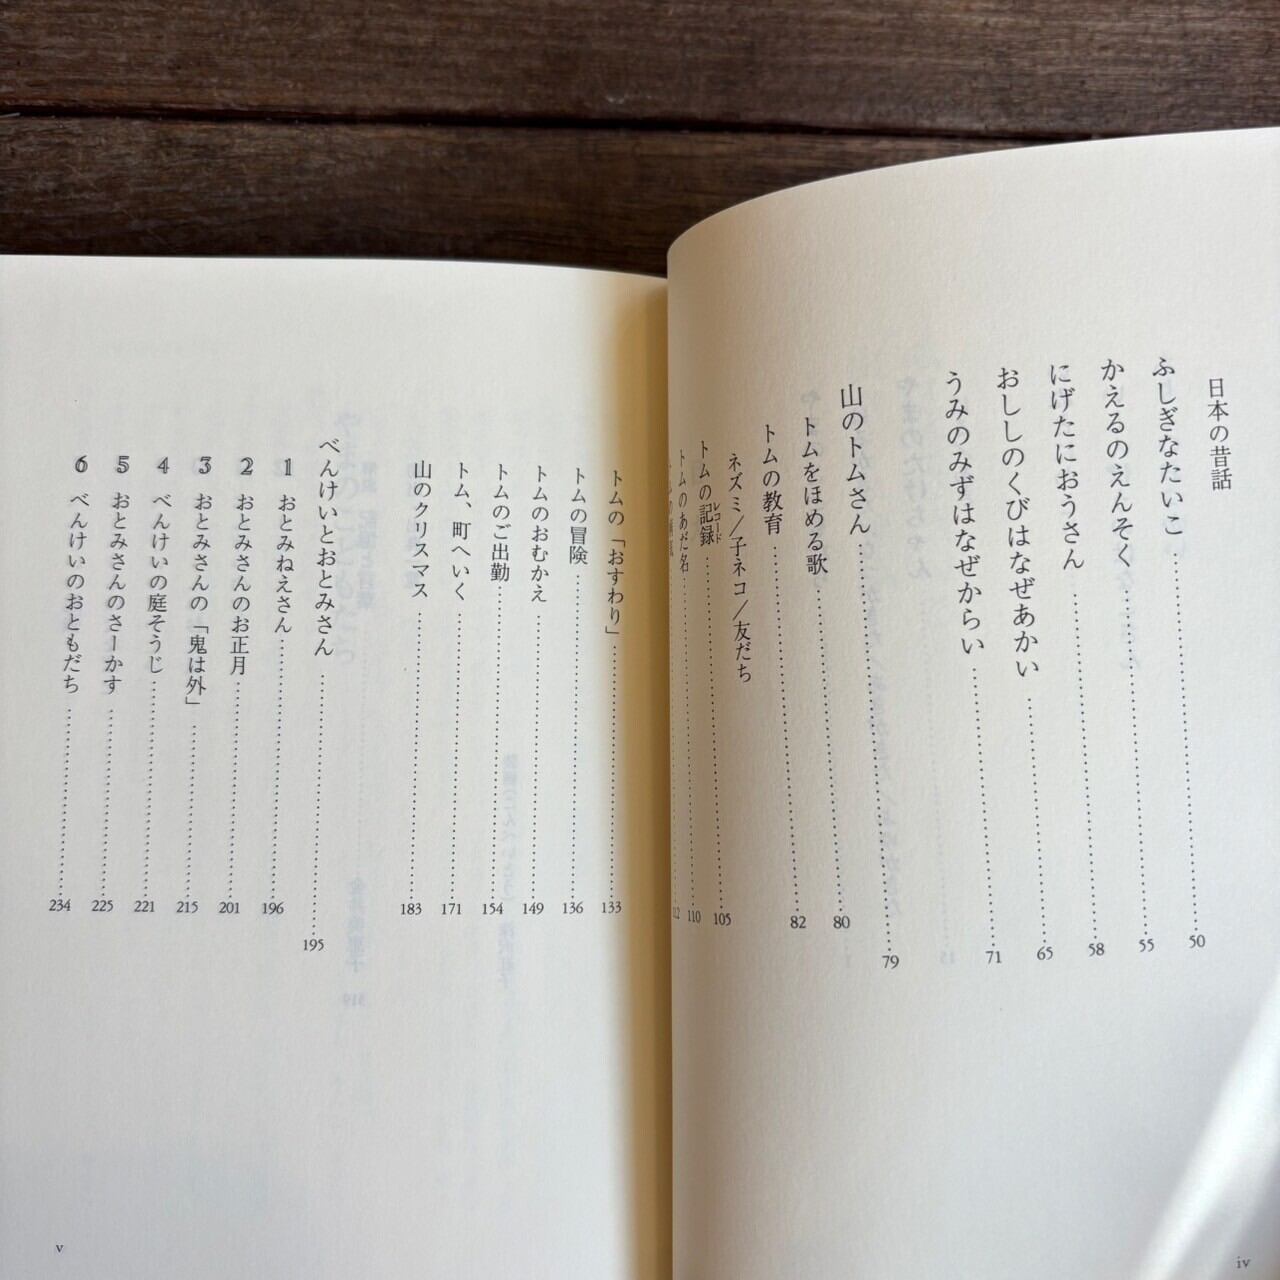 日本の昔話
ふしぎなたいこ……50
かえるのえんそく……55
にげたにおうさん……58
おししのくびはなぜあかい……65
うみのみずはなぜからい……71
山のトムさん……79
トムをほめる歌……80
トムの教育……82
ネズミ／子ネコ／友だち
トムの記録レコード……105
トムのあだ名……110
112
iv
トムの「おすわり」……133
トムの冒険……136
トムのおむかえ……149
トムのご出勤……154
トム、町へいく……171
山のクリスマス……183
べんけいとおとみさん……195
1 おとみねえさん……196
2 おとみさんのお正月……201
3 おとみさんの「鬼は外」……215
4 べんけいの庭そうじ……221
5 おとみさんのさーかす……225
6 べんけいのおともだち……234
v